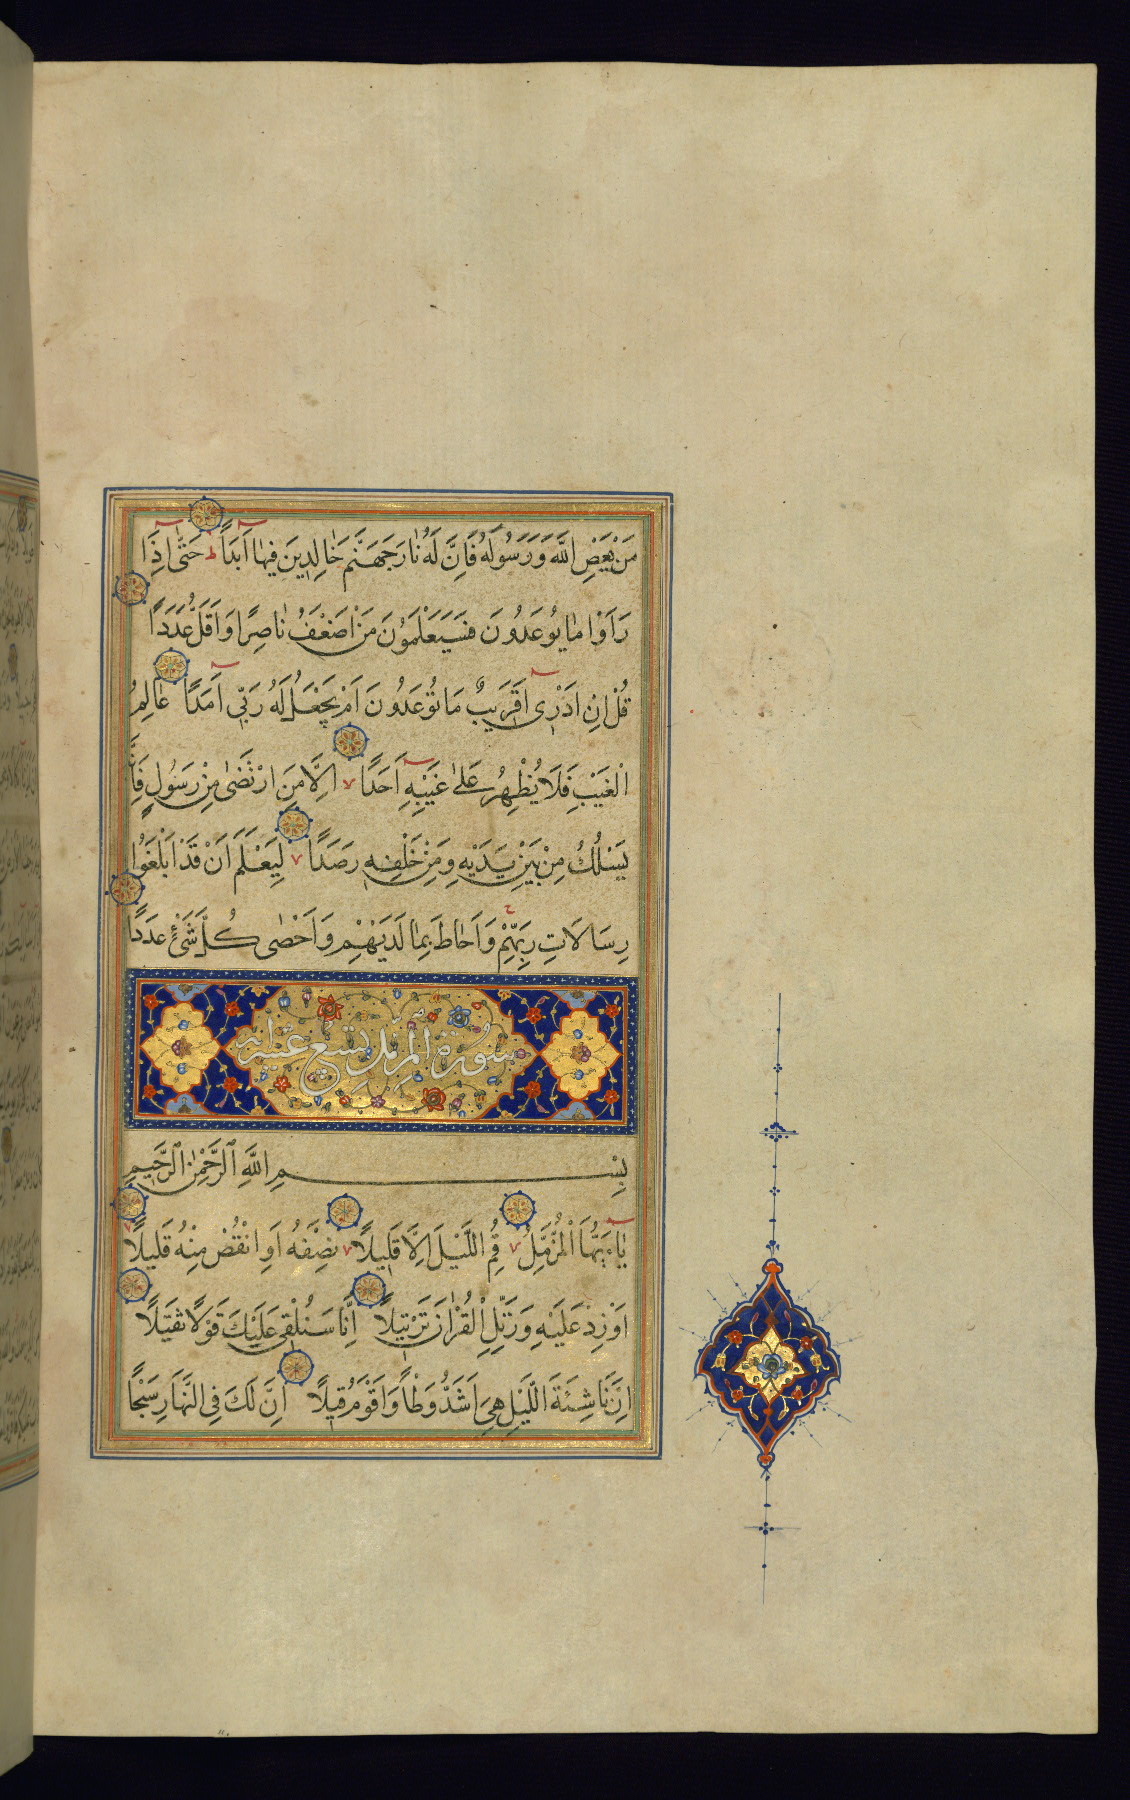 مَنْ يَعْصِ اللَّهَ وَرَسُولَهُ فَاِنَّ لَهُ نَارَ جَهَنَّمَ خَالِدِينَ فِيهَا اَبَدًا ط حَتّٰى اِذَا
رَاَوْا مَا يُوعَدُونَ فَسَيَعْلَمُونَ مَنْ اَضْعَفُ نَاصِرًا وَاَقَلُّ عَدَدًا
قُلْ اِنْ اَدْرِى اَقَرِيبٌ مَا تُوعَدُونَ اَمْ يَجْعَلُ لَهُ رَبِّى اَمَدًا عَالِمُ
الْغَيْبِ فَلَا يُظْهِرُ عَلٰى غَيْبِهِ اَحَدًا اِلَّا مَنِ ارْتَضٰى مِنْ رَسُولٍ فَاِنَّهُ
يَسْلُكُ مِنْ بَيْنِ يَدَيْهِ وَمِنْ خَلْفِهِ رَصَدًا لِيَعْلَمَ اَنْ قَدْ اَبْلَغُوا
رِسَالَاتِ رَبِّهِمْ وَاَحَاطَ بِمَا لَدَيْهِمْ وَاَحْصٰى كُلَّ شَىْءٍ عَدَدًا
سورة المزمل تسع عشر اية
بِسْمِ اللَّهِ الرَّحْمٰنِ الرَّحِيمِ
يَاءَيُّهَا الْمُزَّمِّلُ قُمِ اللَّيْلَ اِلَّا قَلِيلًا نِصْفَهُ اَوِ انْقُصْ مِنْهُ قَلِيلًا
اَوْ زِدْ عَلَيْهِ وَرَتِّلِ الْقُرْاٰنَ تَرْتِيلًا اِنَّا سَنُلْقِى عَلَيْكَ قَوْلًا ثَقِيلًا
اِنَّ نَاشِئَةَ اللَّيْلِ هِىَ اَشَدُّ وَطْاً وَاَقْوَمُ قِيلًا اِنَّ لَكَ فِى النَّهَارِ سَبْحًا